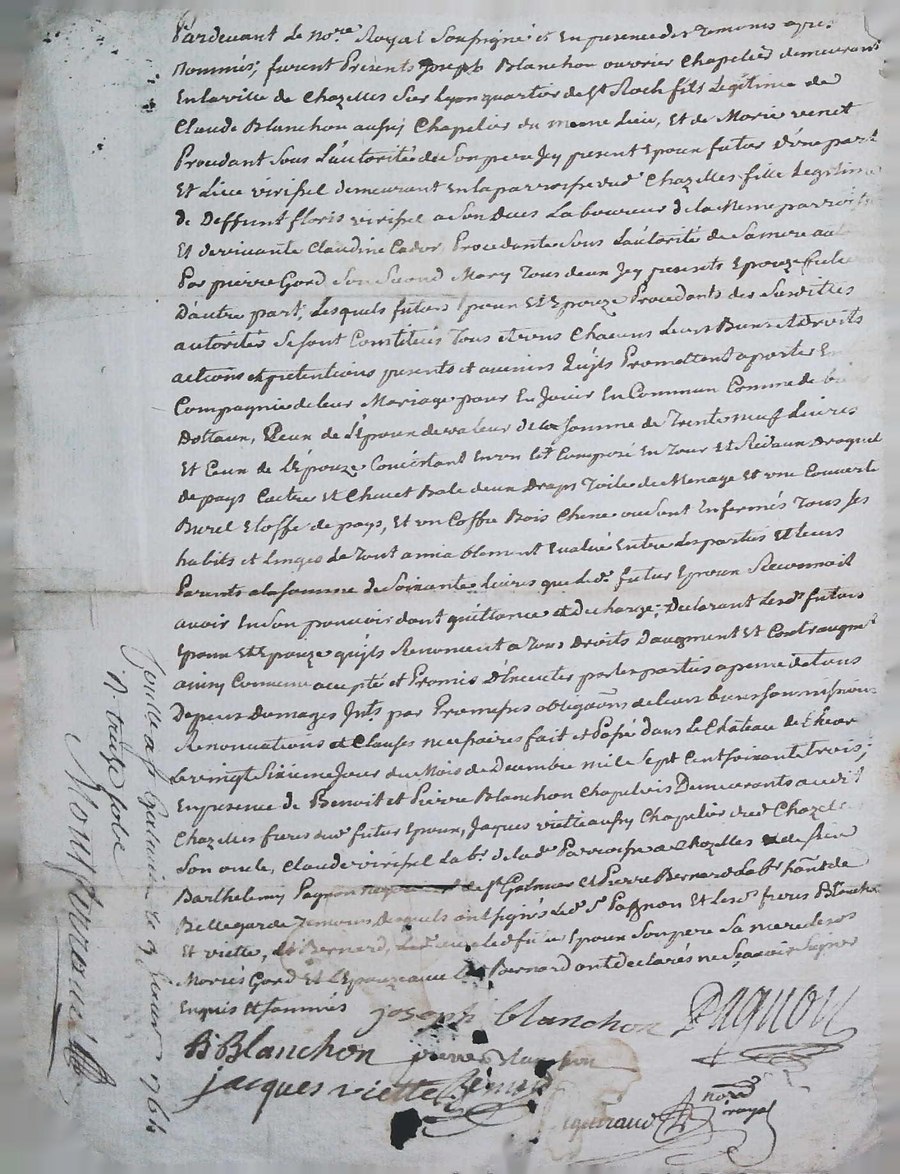 Pardevant le No.re Royal Soussigné et En presence des temoins apres
nommés, furent Presents Joseph Blanchon ouvrier Chapelier demeurant
En la ville de Chazelles Sur Lyon quartier de St Roch fils Legitime de
Claude Blanchon aussy Chapelier du meme Lieu, Et de Marie venet
Procedant Sous L'autorité de Son pere Jcy present Epoux futur d'une part
Et virissel demeurant En la parroisse dud. Chazelles fille Legitime
de Deffunt floris virissel Laboureur de la Meme parroisse
Et de vivante Claudine Procedante Sous L'autorité de Sa mere
Par pierre Gord Son Second Mary tous deux Jcy presents Epouze future
D'autre part, Lesquels futurs Epoux Et Epouze Procedants des Susdittes
autorités Se sont Constitués tous Et uns Chacuns Leurs Biens Et Droits
actions et pretentions presents et avenirs qu'ils Promettent aporter En
Compagnie de leur Mariage pour En Jouir En Commun Comme de biens
Dotaux, Ceux de L'Epoux de valeur de la Somme de trente neuf Livres
Et Ceux de L'Epouze Concistant En un lit Composé En tour Et Rideaux Droguet
de pays Coitre Et Chevet Bale deux Draps toile de Menage Et une Couverte
Burel Etoffe de pays, Et un Coffre Bois Chene ou Sont Enfermés tous Ses
habits et Linges de tout amiablement Evalué Entre Les parties Et Leurs
Parents a la Somme de Soixante Livres que Led. futur Epoux Reconnait
avoir En Son pouvoir dont quittance et decharge, Declarant Lesd. futurs
Epoux Et Epouze qu'ils Renoncent a tous Droits D'augment Et Contraugmt
ainsy Convenu accepté et Promis D'Executer par les parties a peine de tous
Depens Domages Jnts par Promesses obligaons de leurs biens Soumissions
Renonciations et Clauses necessaires fait et Passé dans Le Château de
Le vingt Sixieme Jour du Mois de Decembre mil Sept Cent Soixante trois;
En presence de Benoit et Pierre Blanchon Chapeliers Demeurants aud.t
Chazelles freres dud. futur Epoux, Jaques viette aussy Chapelier dud. Chazelles
Son oncle, Claude virissel Lab.r de lad. Parroisse de Chazelles de Sieur
Barthelemy Pagnon de St Galmier et Pierre Bernard Lab.r hant de
Bellegarde temoins desquels ont signés Led. Sr Pagnon Et Lesd. freres Blanchon
Et viette, Led. futur Epoux Son pere Sa mere Lesd.
Mariés Gord Et L'Epouze avec Led. Bernard ont declarés ne Sçavoir Signer
Enquis Et Sommés
joseph blanchon Pagnon
B Blanchon pierre blanchon
jacques viette
nore royal
Controllé a St Galmier le 3 Janvier 1764
R treize sols